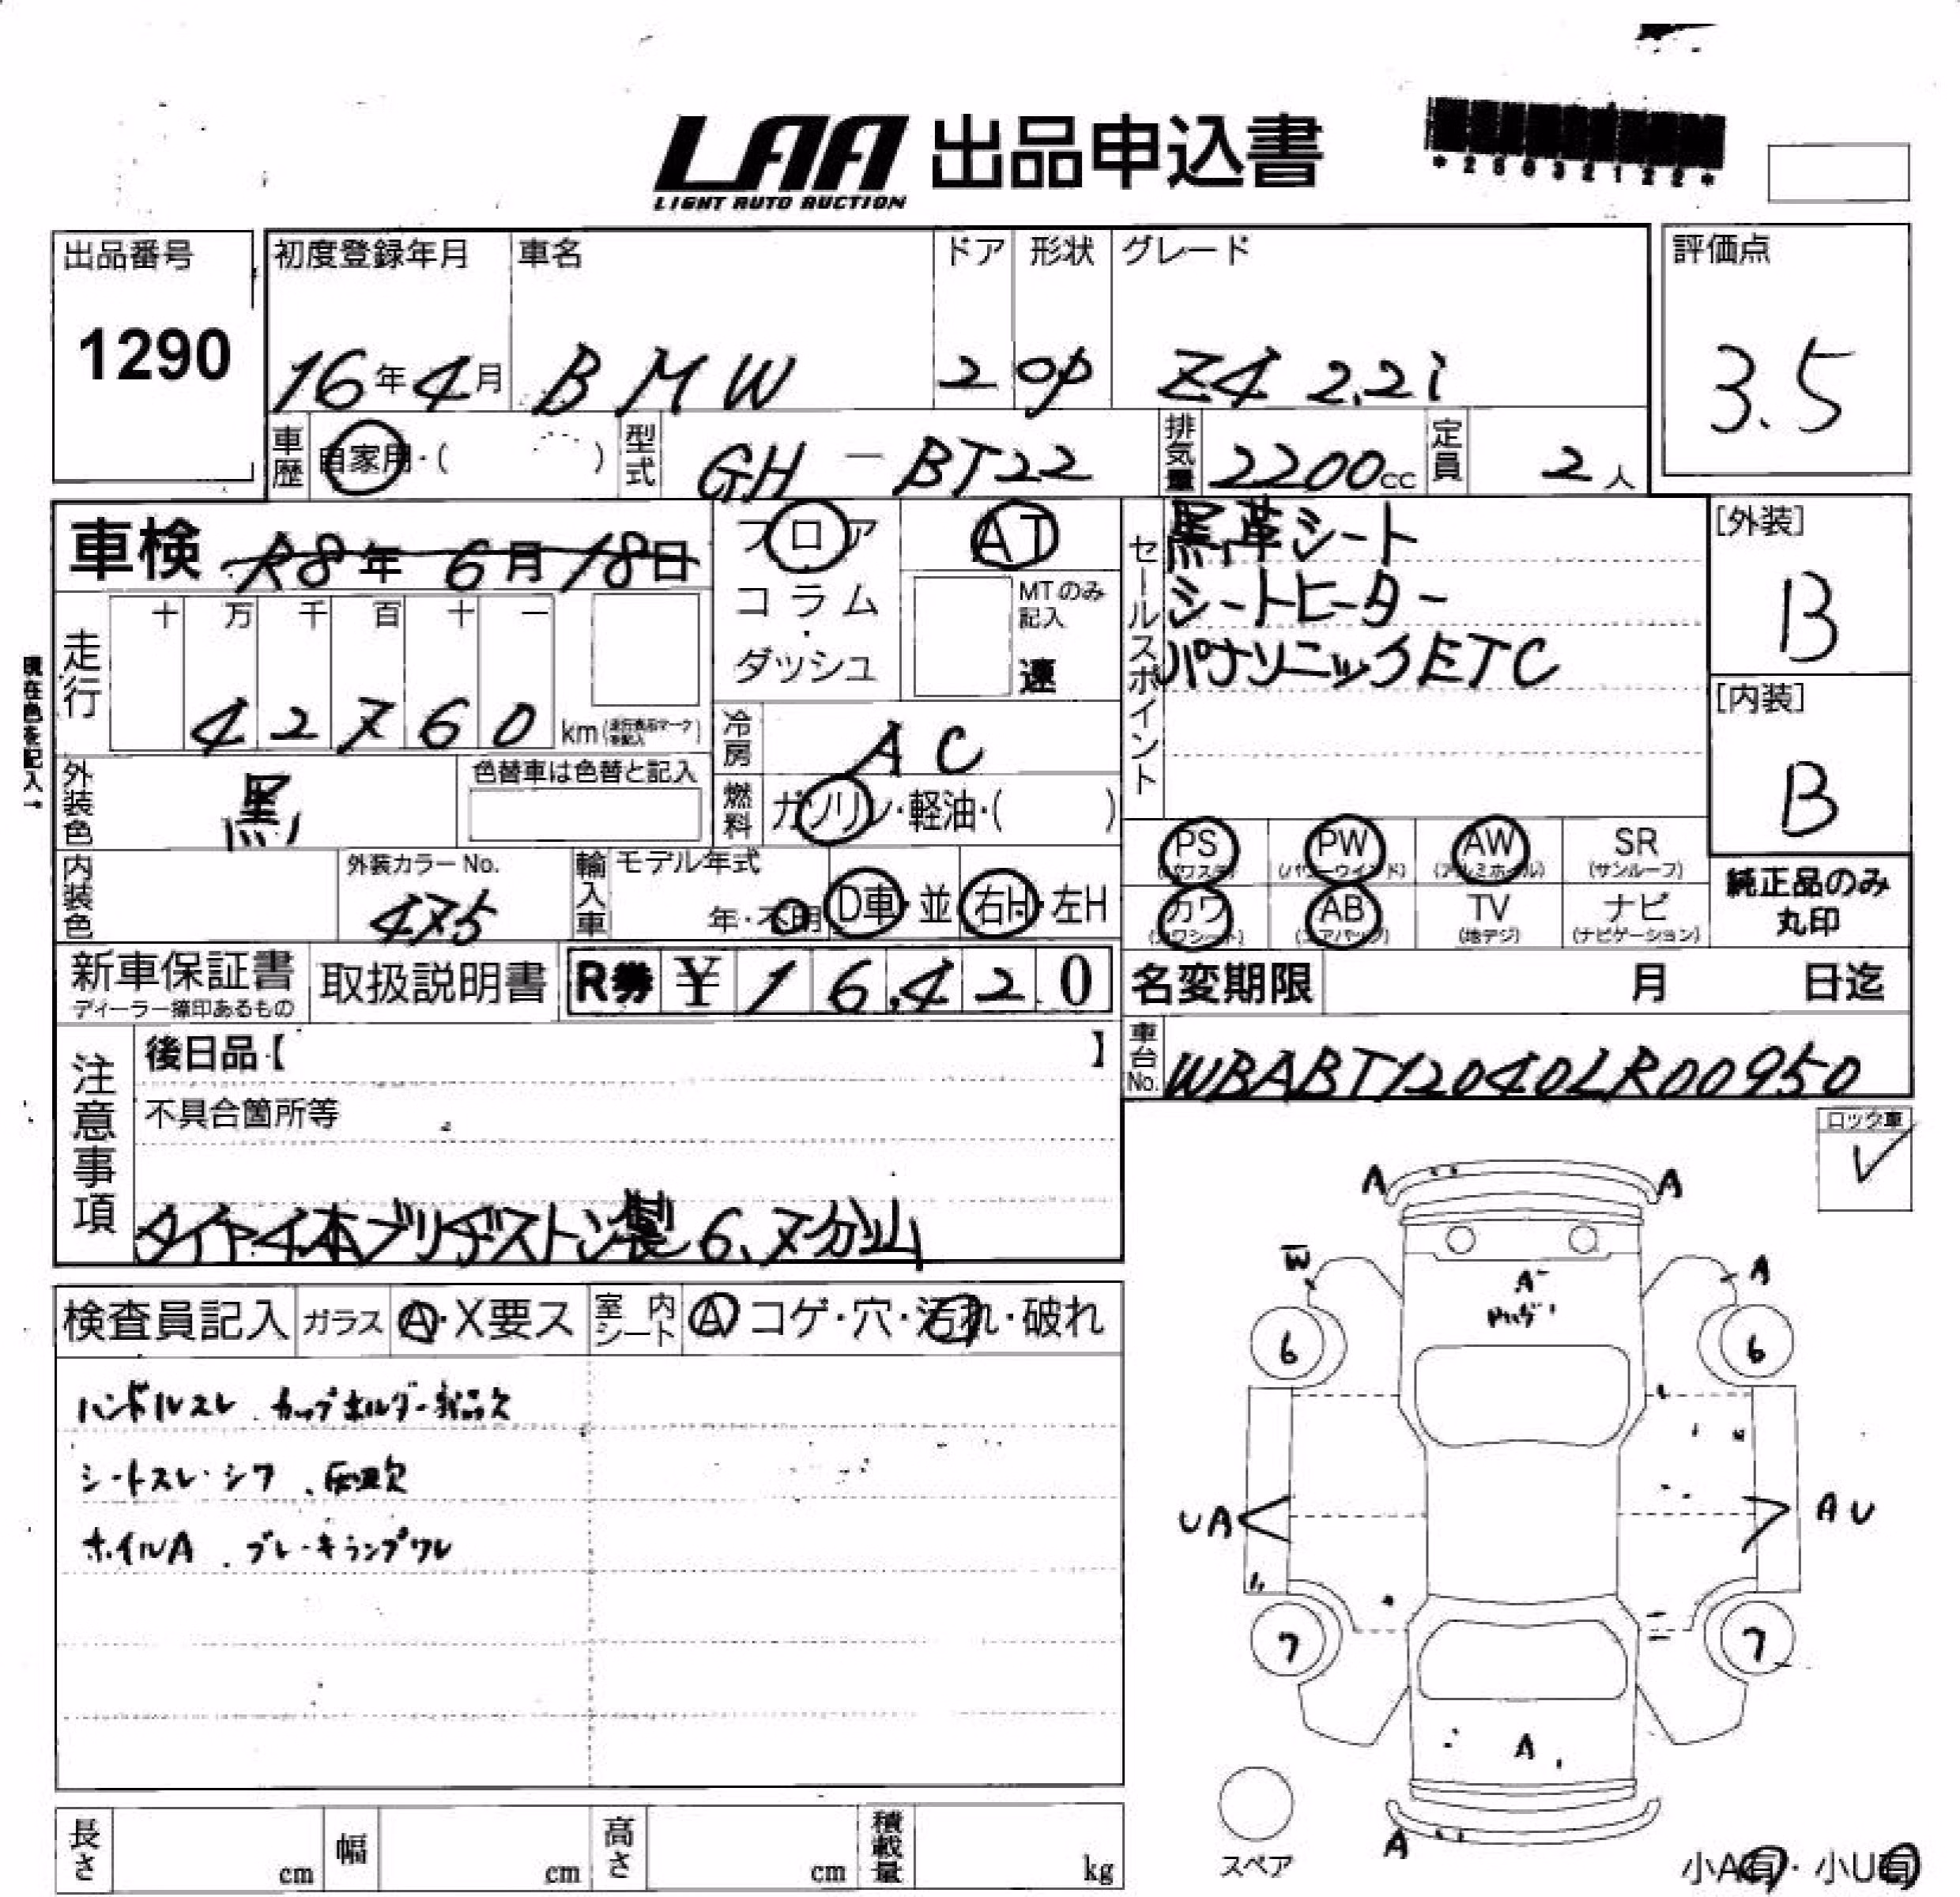 LAA 出品申込書
LIGHT AUTO AUCTION
*25032122*
出品番号
1290
初度登録年月
16年4月
車名
BMW
ドア
2
形状
OP
グレード
Z4 2.2i
評価点
3.5
車歴
自家用・( )
型式
GH-BT22
排気量
2200cc
定員
2人
車検 R8年6月18日
フロア
コラム
・
ダッシュ
AT
MTのみ
記入
速
セールスポイント
黒革シート
シートヒーター
パナソニックETC
[外装]
B
[内装]
B
現在色を記入→
走行
十 万 千 百 十 一
4 2 7 6 0 km
冷房
AC
外装色
黒
色替車は色替と記入
燃料
ガソリン・軽油・( )
PS PW AW SR
(パワステ) (パワーウインド) (アルミホイール) (サンルーフ)
カワ AB TV ナビ
(カワシート) (エアバッグ) (地デジ) (ナビゲーション)
純正品のみ
丸印
内装色
外装カラーNo.
475
輸入車
モデル年式
年・不明
D車・並
右H・左H
新車保証書
取扱説明書
R券 ¥ 16,420
名変期限 月 日迄
注意事項
後日品【 】
不具合箇所等
タイヤ4本ブリヂストン製6、7分山
車台No.
WBABT12040LR00950
ロック車
検査員記入
ガラス
A・X要ス
室内
シート
A コゲ・穴・汚れ・破れ
ハンドルスレ、カップホルダー部品欠
シートスレ・シワ、
ホイルA、ブレーキランプワレ
A A
W A
A
6 6
UA AU
7 7
A
A
スペア
小A有・小U有
長さ cm
幅 cm
高さ cm
積載量 kg